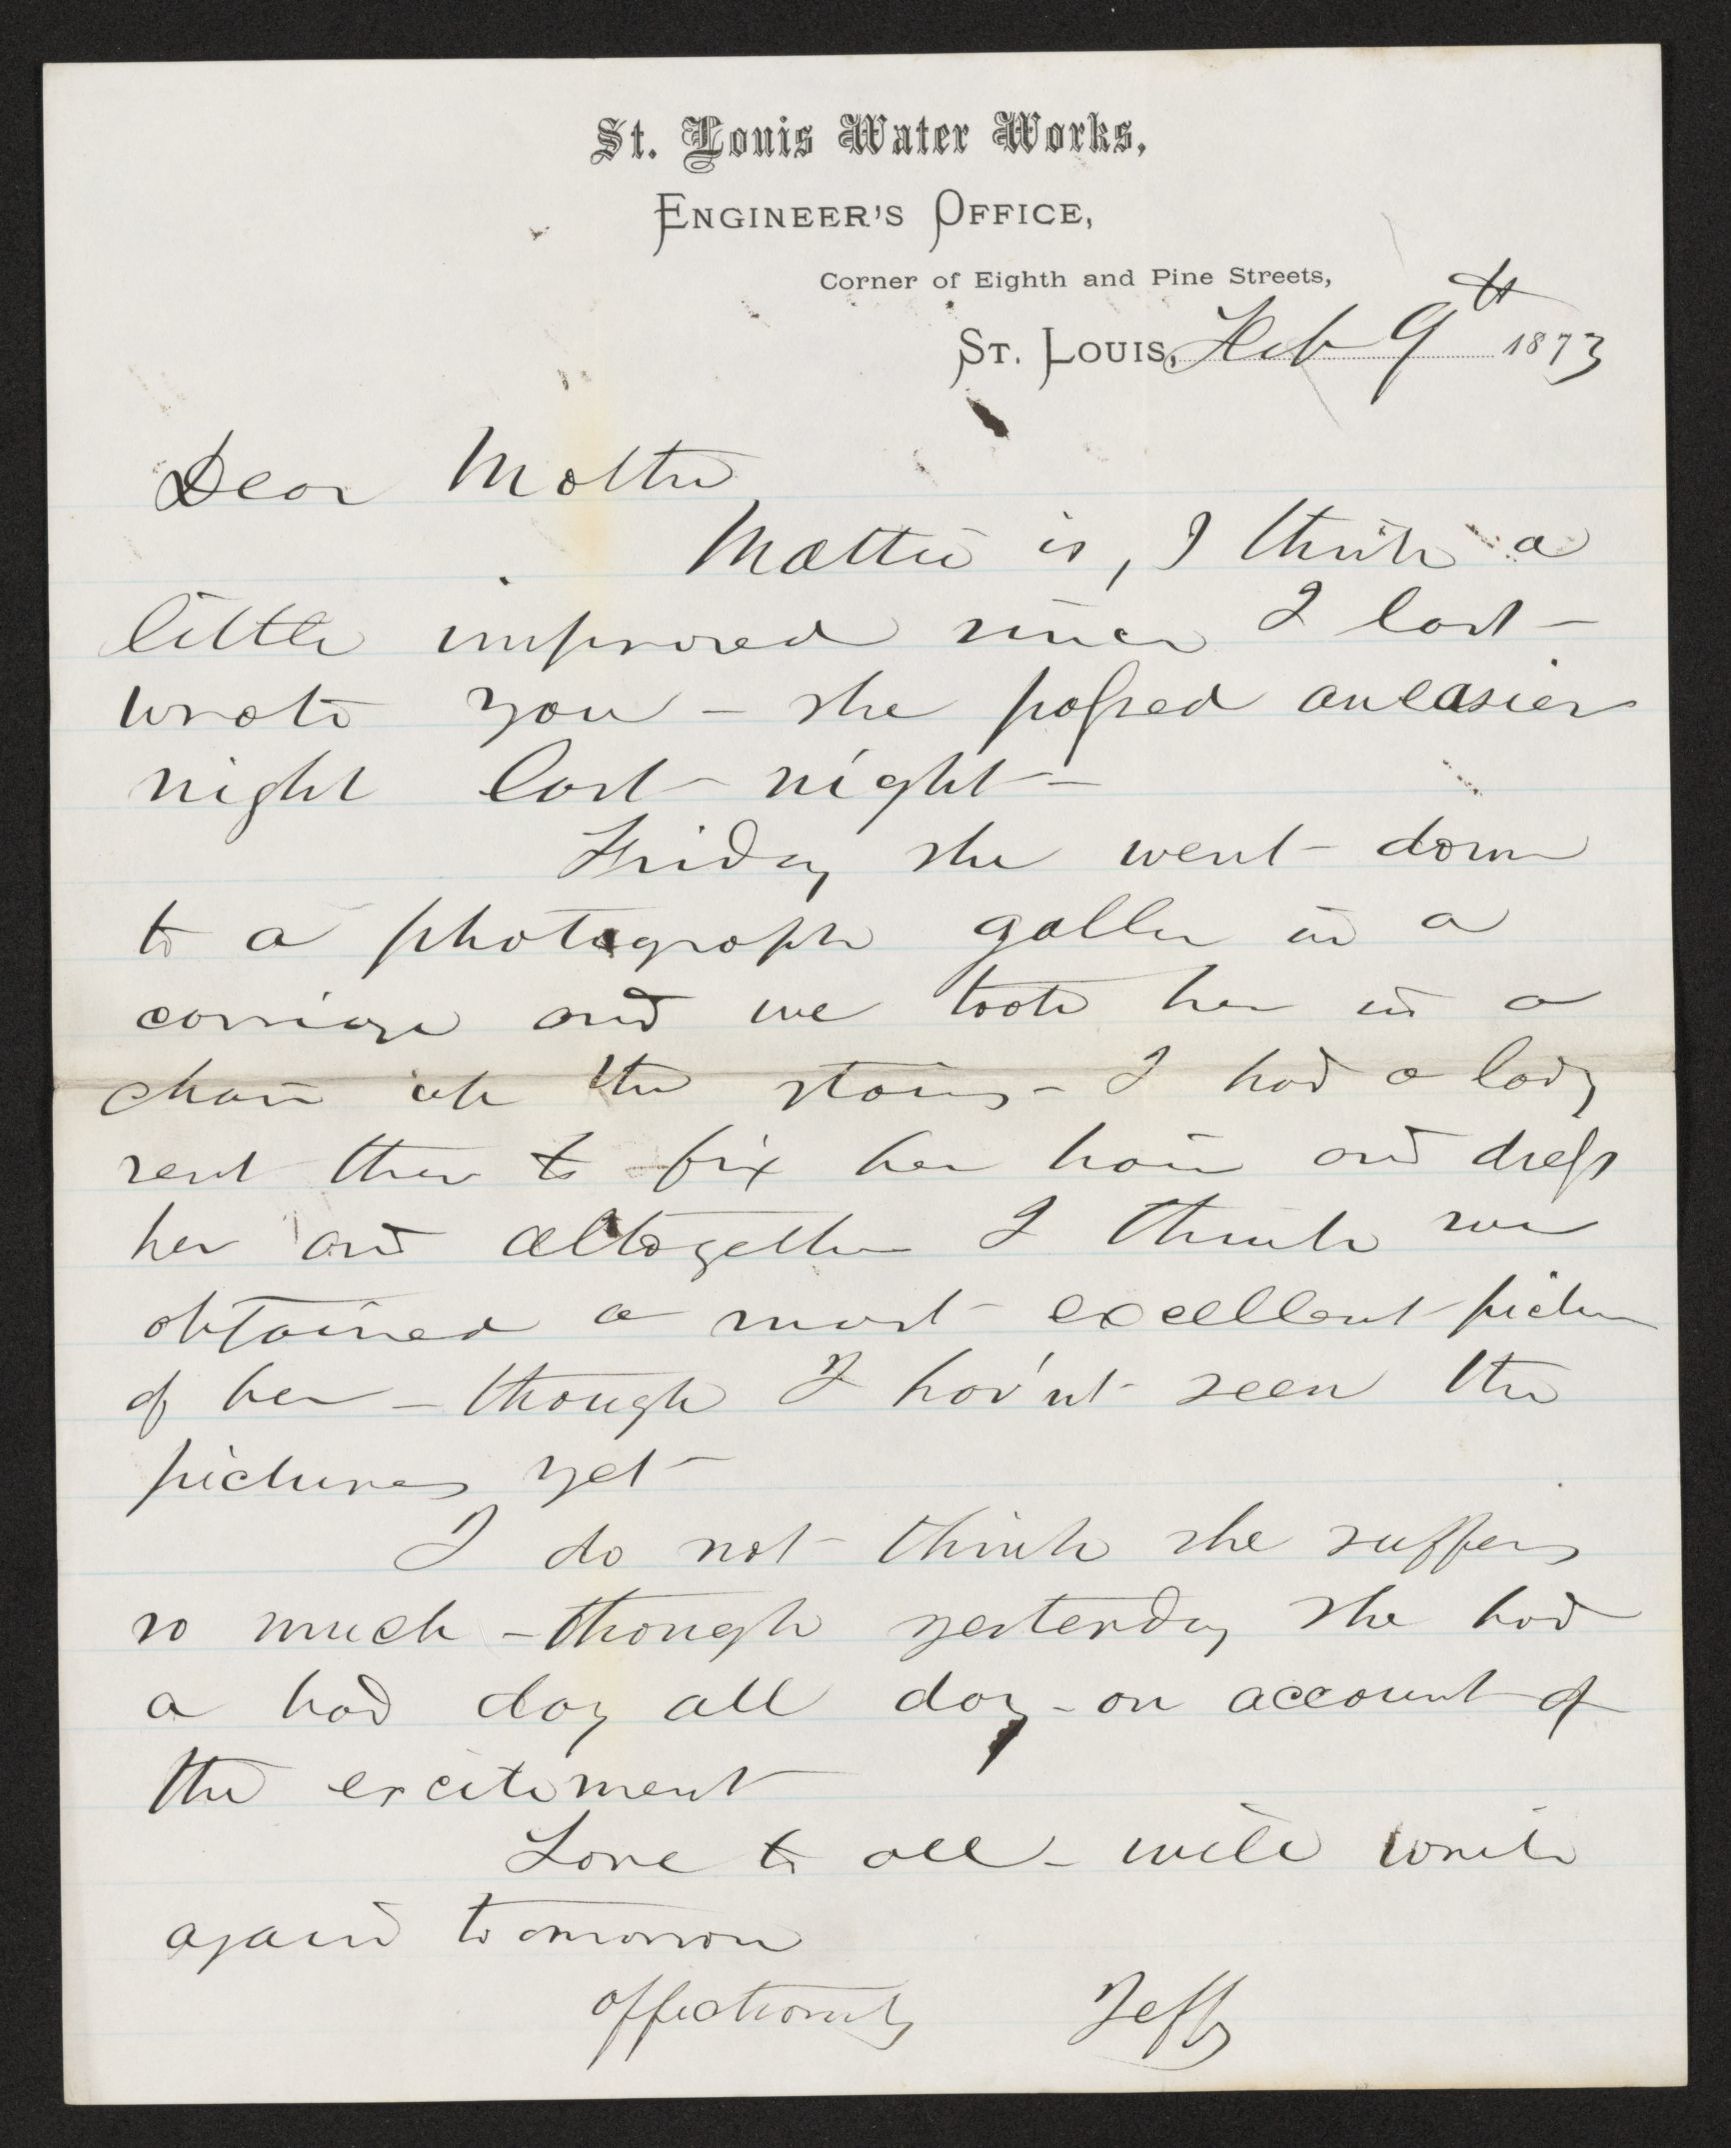 St. Louis Water Works,
ENGINEER'S OFFICE,
Corner of Eighth and Pine Streets,
ST. LOUIS, Feb 9th 1873
Dear Mother
Mattie is, I think a
little improved since I last –
wrote you – she passed an easier
night last night –
Friday she went down
to a photograph galler in a
carriage and we took her in a
chair up the stairs – I had a lady
sent there to fix her hair and dress
her and altogether I think we
obtained a most excellent picture
of her – though I hav'nt seen the
pictures yet –
I do not think she suffers
so much – though yesterday she had
a bad day all day – on account of
the excitement
Love to all – will write
again tomorrow
affectionately Jeff